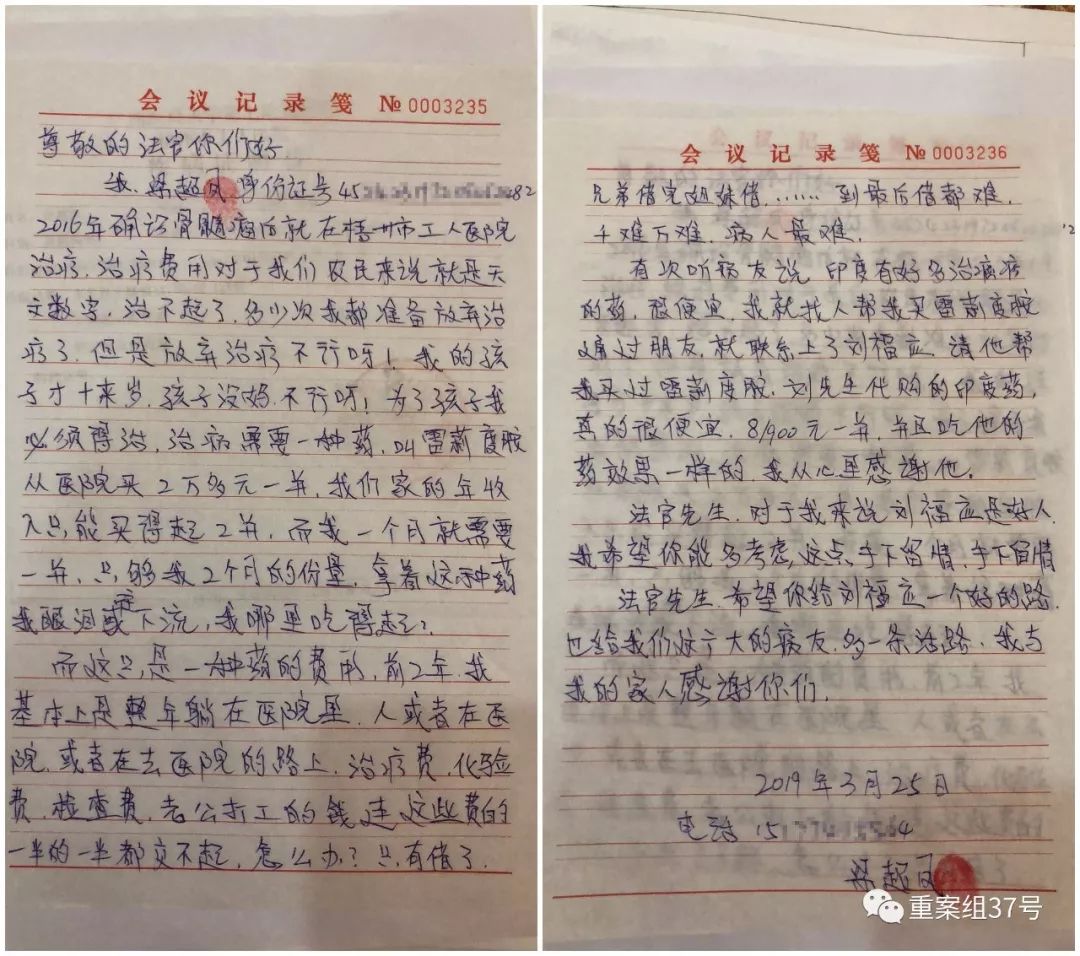 会议记录笺 № 0003235
尊敬的法官你们好
我.梁超凤 身份证号45 82
2016年确诊骨髓瘤后就在梧州市工人医院
治疗.治疗费用对于我们农民来说就是天
文数字,治不起了.多少次我都准备放弃治
疗了.但是放弃治疗不行呀!我的孩
子才十来岁.孩子没妈.不行呀!为了孩子我
必须得治,治病需要一种药,叫雷利度胺
从医院买2万多元一盒,我们家的年收
入只能买得起2盒,而我一个月就需要
一盒,只够我2个月的份量,拿着这种药
我眼泪往下流,我哪里吃得起?
而这只是一种药的费用,前2年.我
基本上是整年躺在医院里.人或者在医
院.或者在去医院的路上.治疗费.化验
费.检查费.老公打工的钱连这些费的
一半的一半都交不起.怎么办?只有借了.
会议记录笺 № 0003236
兄弟借完姐妹借.……到最后借都难.
千难万难.病人最难.
有次听病友说.印度有好多治病
的药.很便宜.我就找人帮我买雷利度胺
通过朋友.就联系上了刘福应.请他帮
我买过雷利度胺.刘先生代购的印度药,
真的很便宜.8/900元一盒.并且吃他的
药效果一样的.我从心里感谢他.
法官先生.对于我来说刘福应是好人.
我希望你能多考虑这点.手下留情.手下留情
法官先生.希望你给刘福应一个好的路.
也给我们这广大的病友.多一条活路.我与
我的家人感谢你们.
2019年3月25日
电话 15
梁超凤
重案组37号